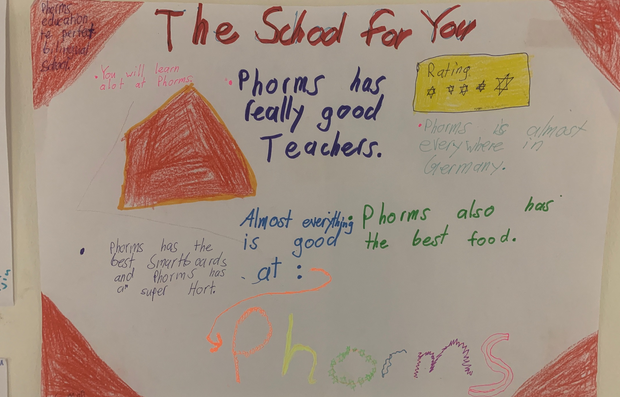 Phorms
education
bilingual
The School for You
• You will learn
alot at Phorms
• Phorms has
really good
Teachers.
Rating
• Phorms is almost
everywhere in
Germany.
Almost everything
is good
at :
• Phorms also has
the best food.
• Phorms has the
best Smartboards
and Phorms has
a super Hort.
Phorms